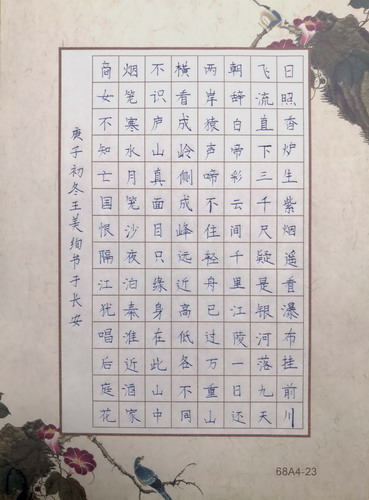 日照香炉生紫烟遥看瀑布挂前川
飞流直下三千尺疑是银河落九天
朝辞白帝彩云间千里江陵一日还
两岸猿声啼不住轻舟已过万重山
横看成岭侧成峰远近高低各不同
不识庐山真面目只缘身在此山中
烟笼寒水月笼沙夜泊秦淮近酒家
商女不知亡国恨隔江犹唱后庭花
庚子初冬王美绚书于长安
68A4-23